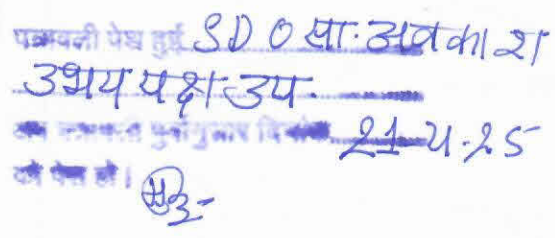 पत्रावली पेश हुई SDO सा. अवकाश
उभय पक्ष उप.
पत्रावली पूर्वानुसार दिनांक 21-4-25
को पेश हो।